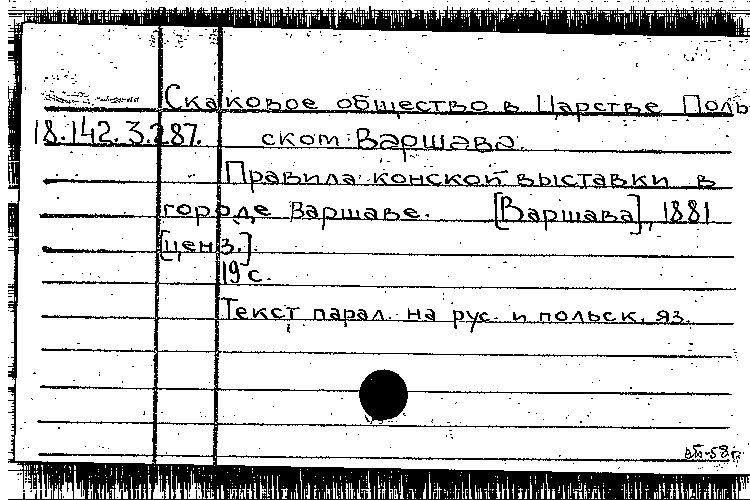 Скаковое общество в Царстве Поль
18.142.3.287. ском. Варшава.
Правила конской выставки в
городе Варшаве. [Варшава], 1881
[ценз.].
19 с.
Текст парал. на рус. и польск. яз.